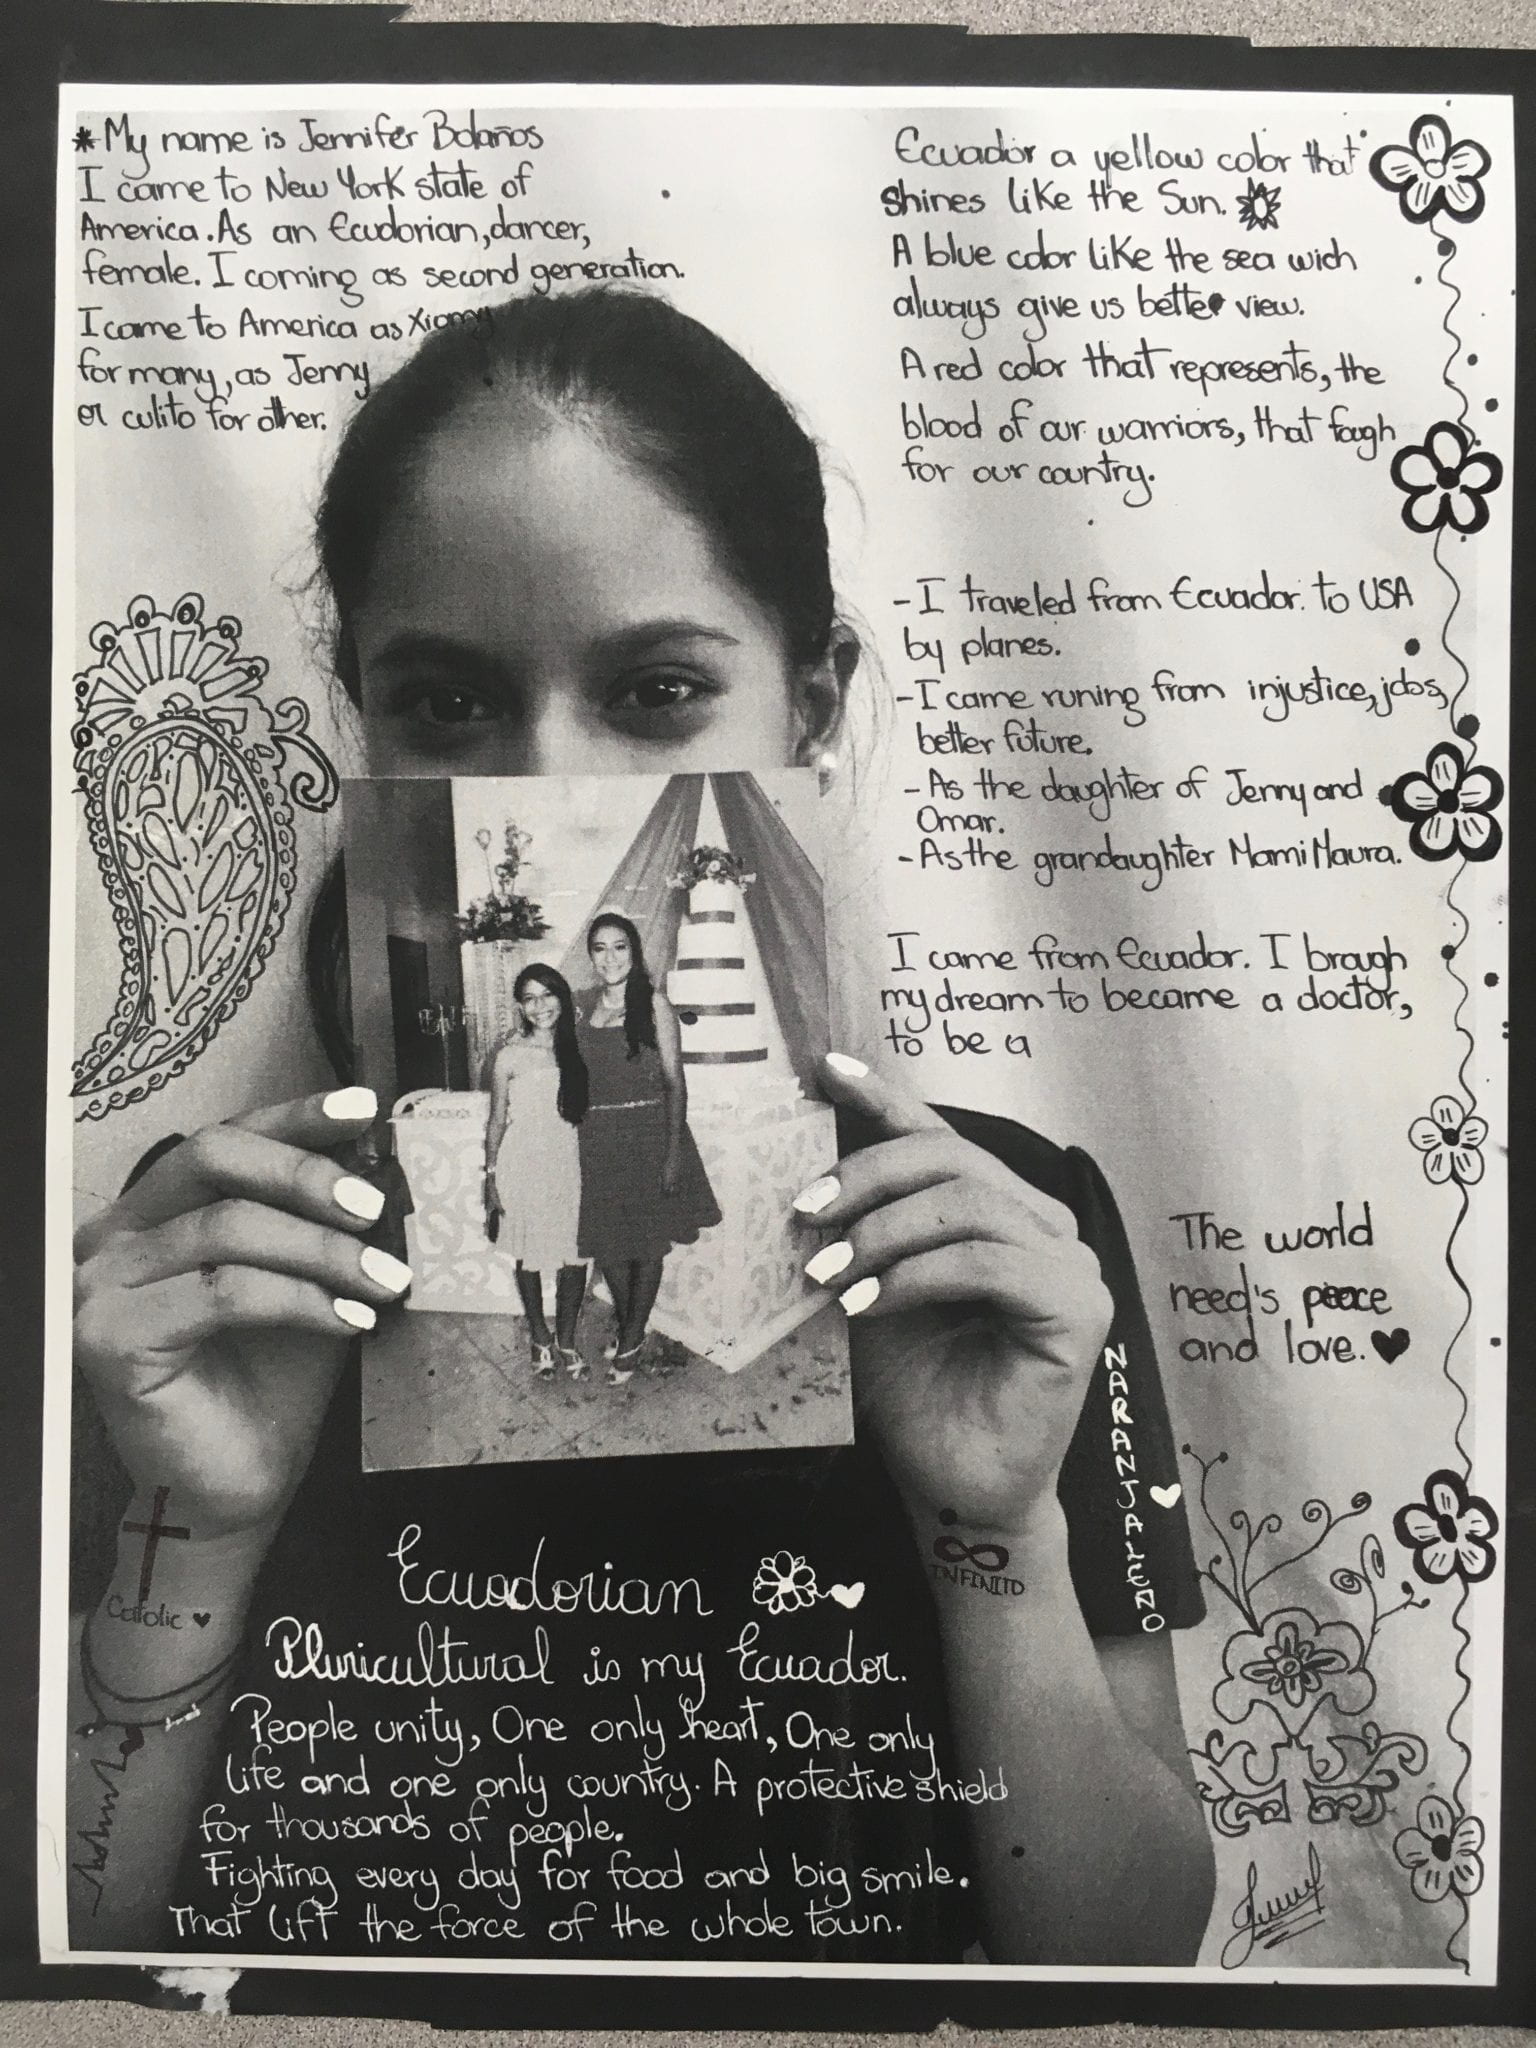 *My name is Jennifer Bolaños
I came to New York state of
America. As an Ecudorian, dancer,
female. I coming as second generation.
I came to America as Xiomy
for many, as Jenny
or culito for other.
Ecuador a yellow color that
shines like the Sun.
A blue color like the sea wich
always give us better view.
A red color that represents, the
blood of our warriors, that fough
for our country.
- I traveled from Ecuador. to USA
by planes.
- I came runing from injustice, jobs,
better future.
- As the daughter of Jenny and
Omar.
- As the grandaughter Mami Maura.
I came from Ecuador. I brough
my dream to became a doctor,
to be a
The world
need's peace
and love.
NARANJALEÑO
INFINITO
Catolic
Ecuadorian
Pluricultural is my Ecuador.
People unity, One only heart, One only
life and one only country. A protective shield
for thousands of people.
Fighting every day for food and big smile.
That lift the force of the whole town.